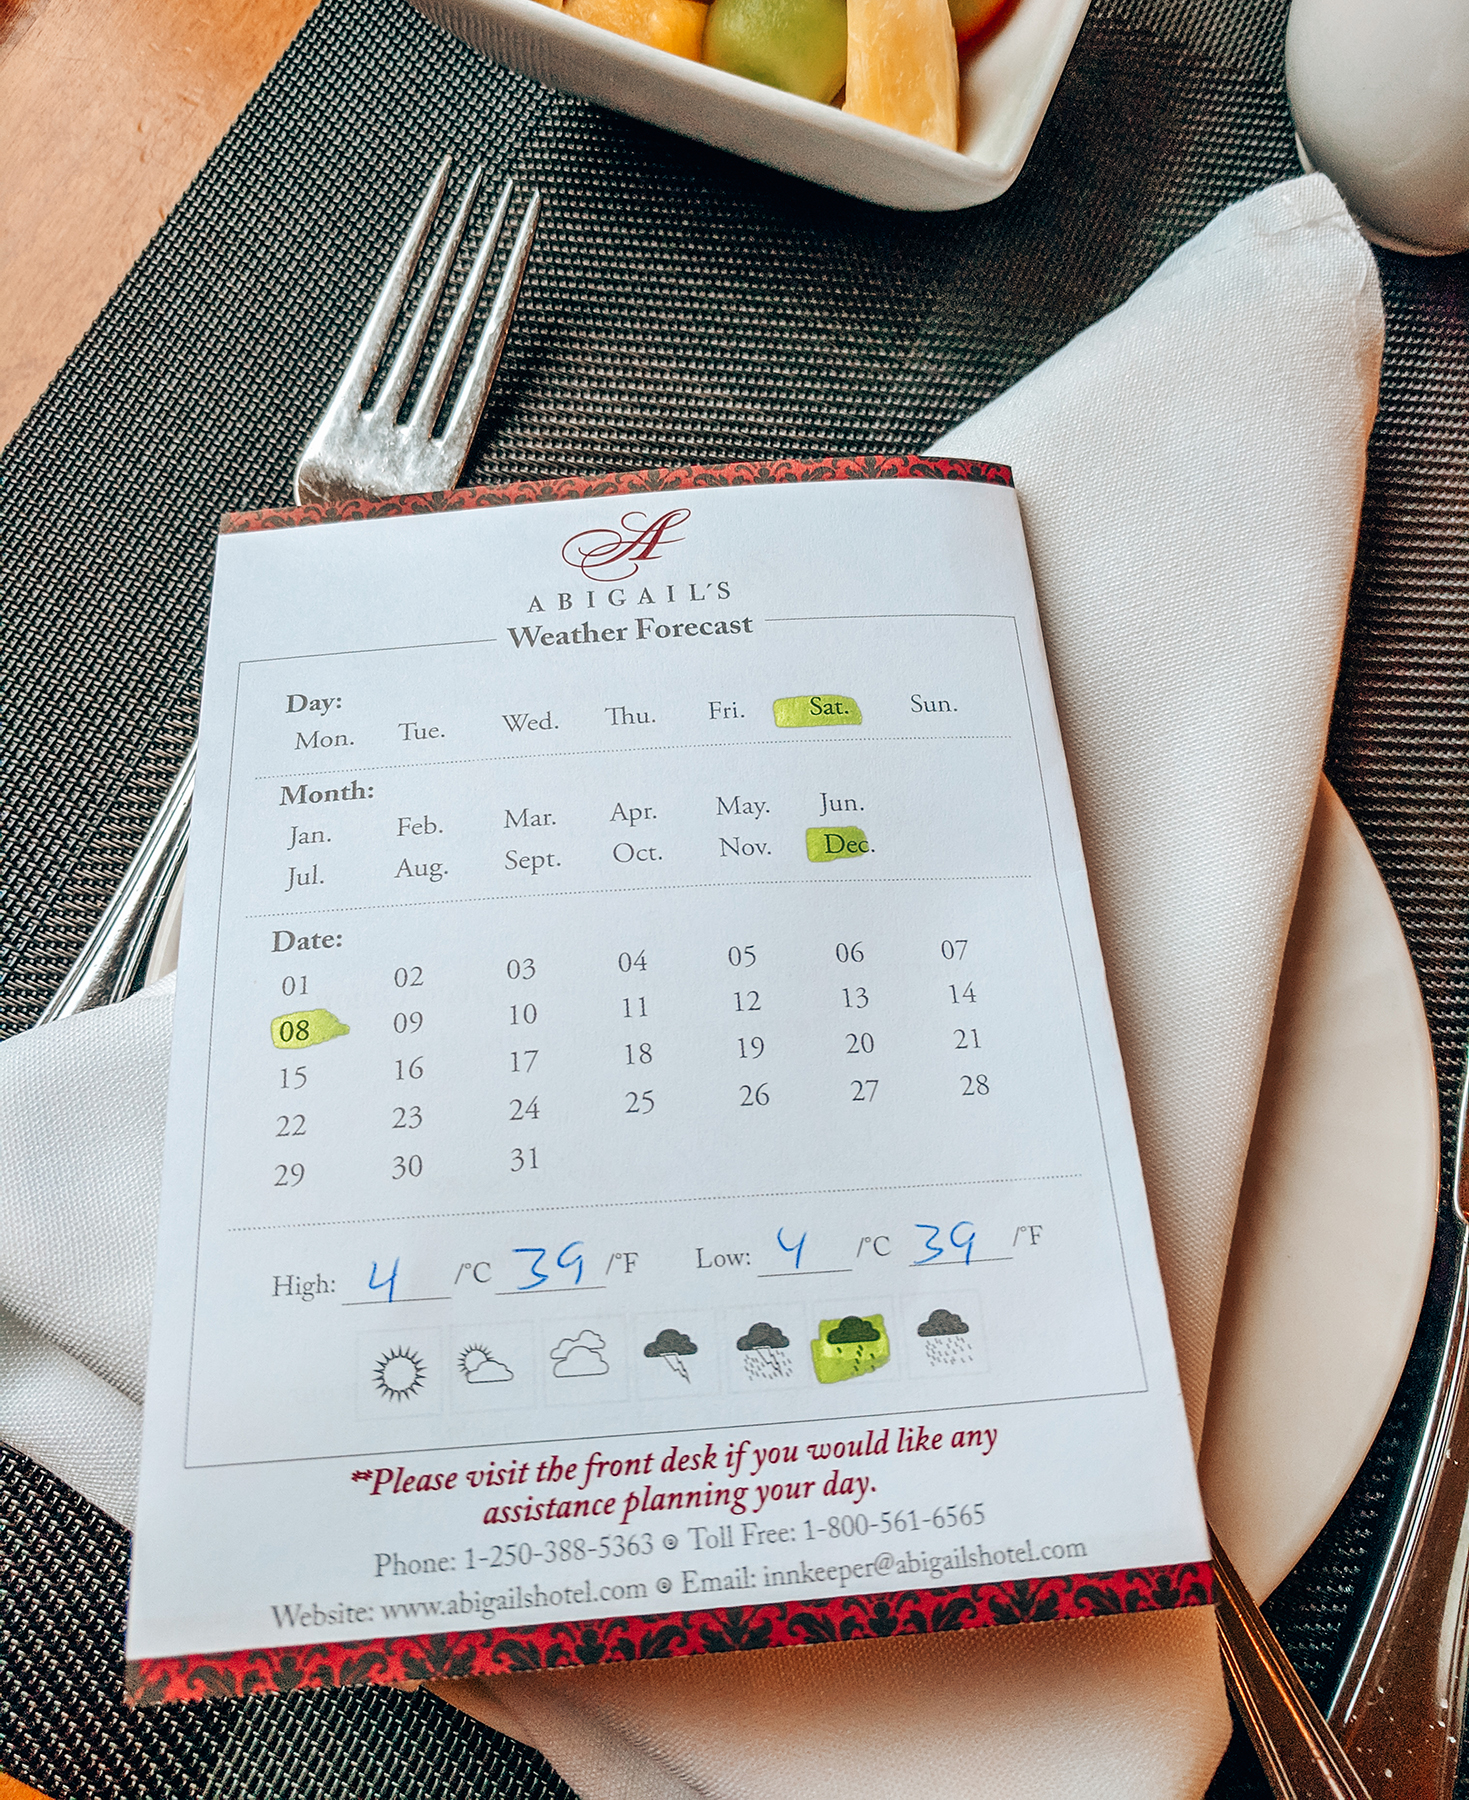 A
ABIGAIL´S
Weather Forecast
Day:
Mon. Tue. Wed. Thu. Fri. Sat. Sun.
Month:
Jan. Feb. Mar. Apr. May. Jun.
Jul. Aug. Sept. Oct. Nov. Dec.
Date:
01 02 03 04 05 06 07
08 09 10 11 12 13 14
15 16 17 18 19 20 21
22 23 24 25 26 27 28
29 30 31
High: 4 /°C 39 /°F Low: 4 /°C 39 /°F
**Please visit the front desk if you would like any
assistance planning your day.
Phone: 1-250-388-5363 ⊙ Toll Free: 1-800-561-6565
Website: www.abigailshotel.com ⊙ Email: innkeeper@abigailshotel.com